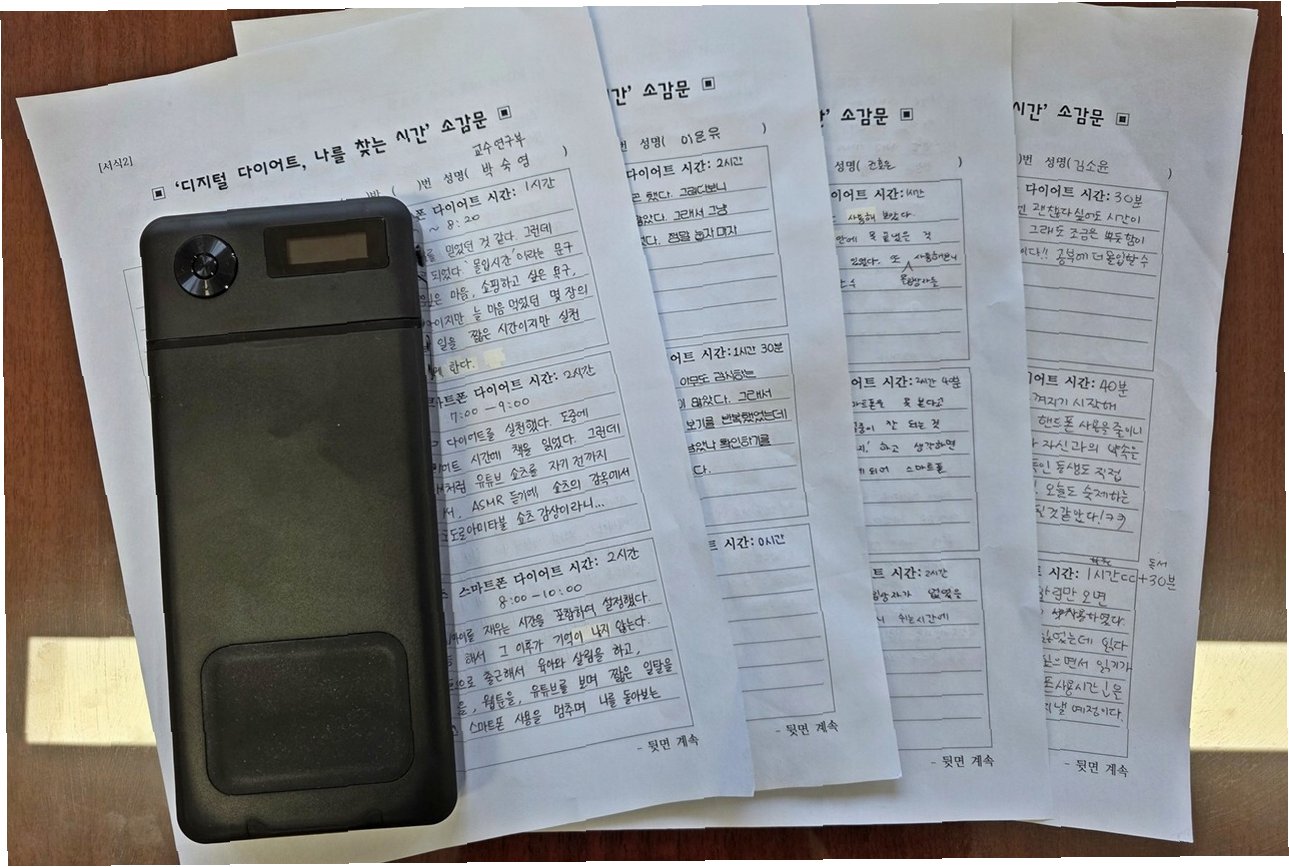 [서식2]
▣ '디지털 다이어트, 나를 찾는 시간' 소감문 ▣
교수연구부
)번 성명( 박숙영 )
다이어트 시간: 1시간
~ 8:20
믿었던 것 같다. 그런데
되었다 '몰입시간'이라는 문구
마음, 쇼핑하고 싶은 욕구,
늘 마음 먹었던 몇 장의
일을 짧은 시간이지만 실천
한다.
다이어트 시간: 2시간
7:00 - 9:00
다이어트를 실천했다. 도중에
시간에 책을 읽었다. 그런데
유튜브 쇼츠를 자기 전까지
ASMR 듣기에 쇼츠의 감옥에서
도로아미타불 쇼츠 감상이라니...
스마트폰 다이어트 시간: 2시간
8:00-10:00
재우는 시간을 포함하여 설정했다.
해서 그 이후가 기억이 나지 않는다.
출근해서 육아와 살림을 하고,
웹툰을, 유튜브를 보며 짧은 일탈을
스마트폰 사용을 멈추며 나를 돌아보는
- 뒷면 계속
소감문 ▣
번 성명( 이윤유 )
다이어트 시간: 2시간
했다. 그러다보니
그래서 그냥
정말 눕자마자
시간: 1시간 30분
않았다. 그래서
보기를 반복했었는데
확인하기를
다.
시간: 0시간
- 뒷면 계속
소감문 ▣
성명(
다이어트 시간: 1시간
사용해 보았다.
못 끝냈은 것
있었다. 또 사용해보니
시간: 2시간 40분
못 본다고
잘 되는 것
하고 생각하면
되어 스마트폰
시간: 2시간
없었을
쉬는시간에
- 뒷면 계속
시간' 소감문 ▣
)번 성명( 김소윤 )
다이어트 시간: 30분
괜찮다 싶어도 시간이
그래도 조금은 뿌듯함이
공부에 더 몰입할 수
시간: 40분
꺼지기 시작해
핸드폰 사용을 줄이니
자신과의 약속은
동생도 직접
오늘도 숙제하는
것 같앋다! ㅋㅋ
독서
시간: 1시간 +30분
알림만 오면
읽었는데 읽다
싶으면서 읽기가
사용시간
낼 예정이다.
- 뒷면 계속